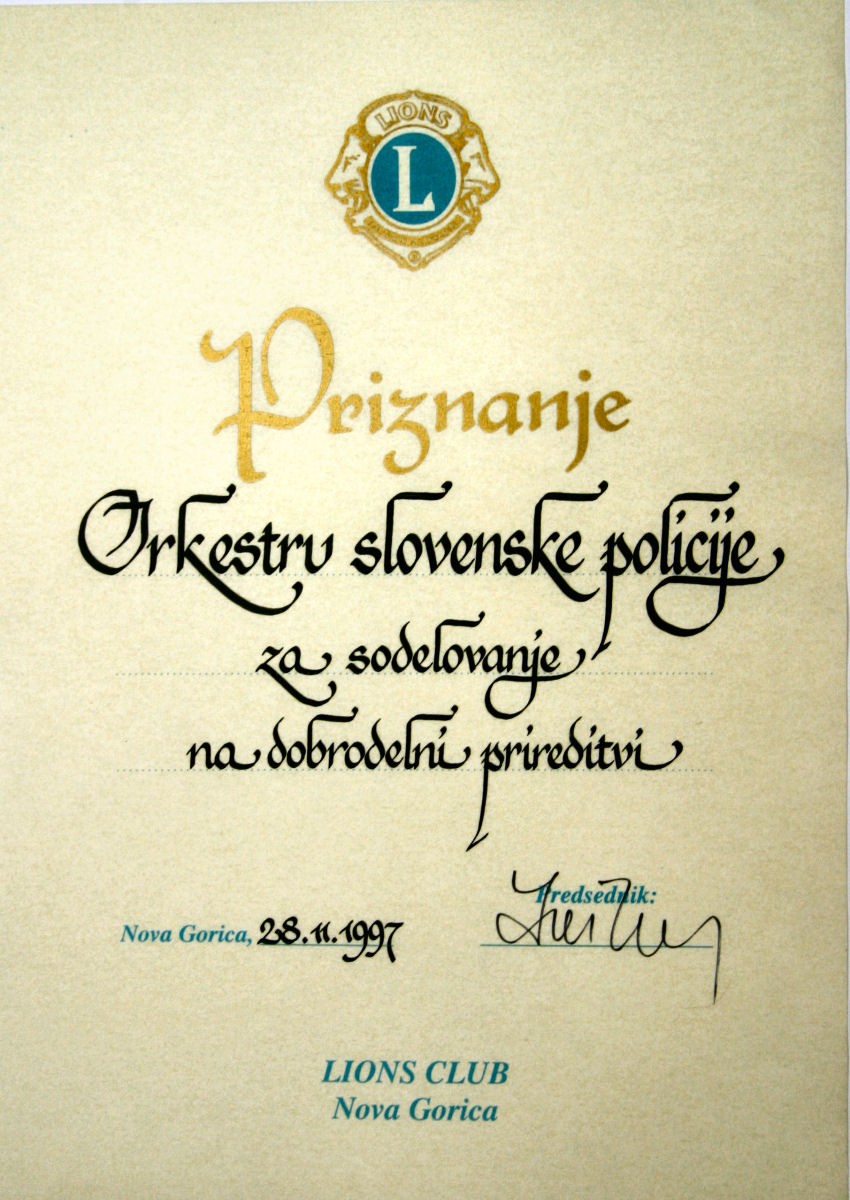 LIONS
L
®
Priznanje
Orkestru slovenske policije
za sodelovanje
na dobrodelni prireditvi
Predsednik:
Nova Gorica, 28.11.1997
LIONS CLUB
Nova Gorica